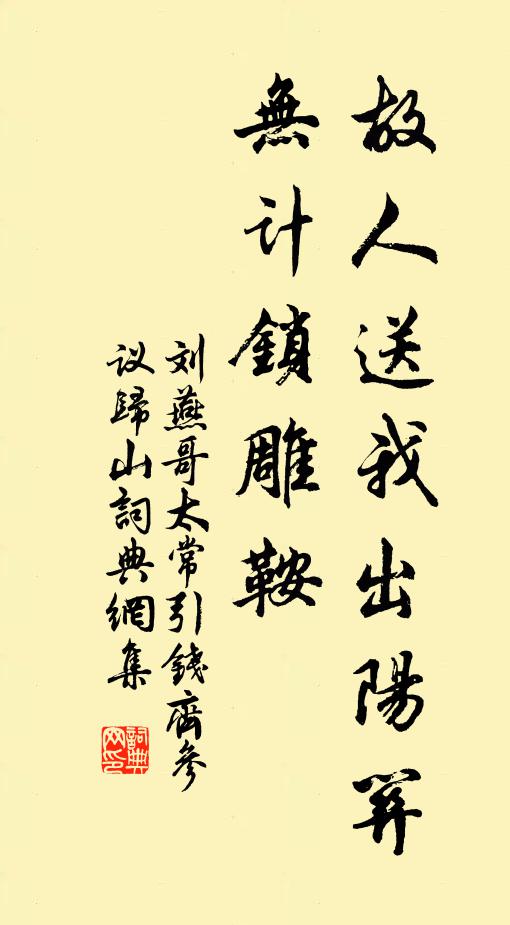 故人送我出陽關
無计鎖雕鞍
刘燕哥太常引錢齊參
议歸山詞典網集
詞典
网印